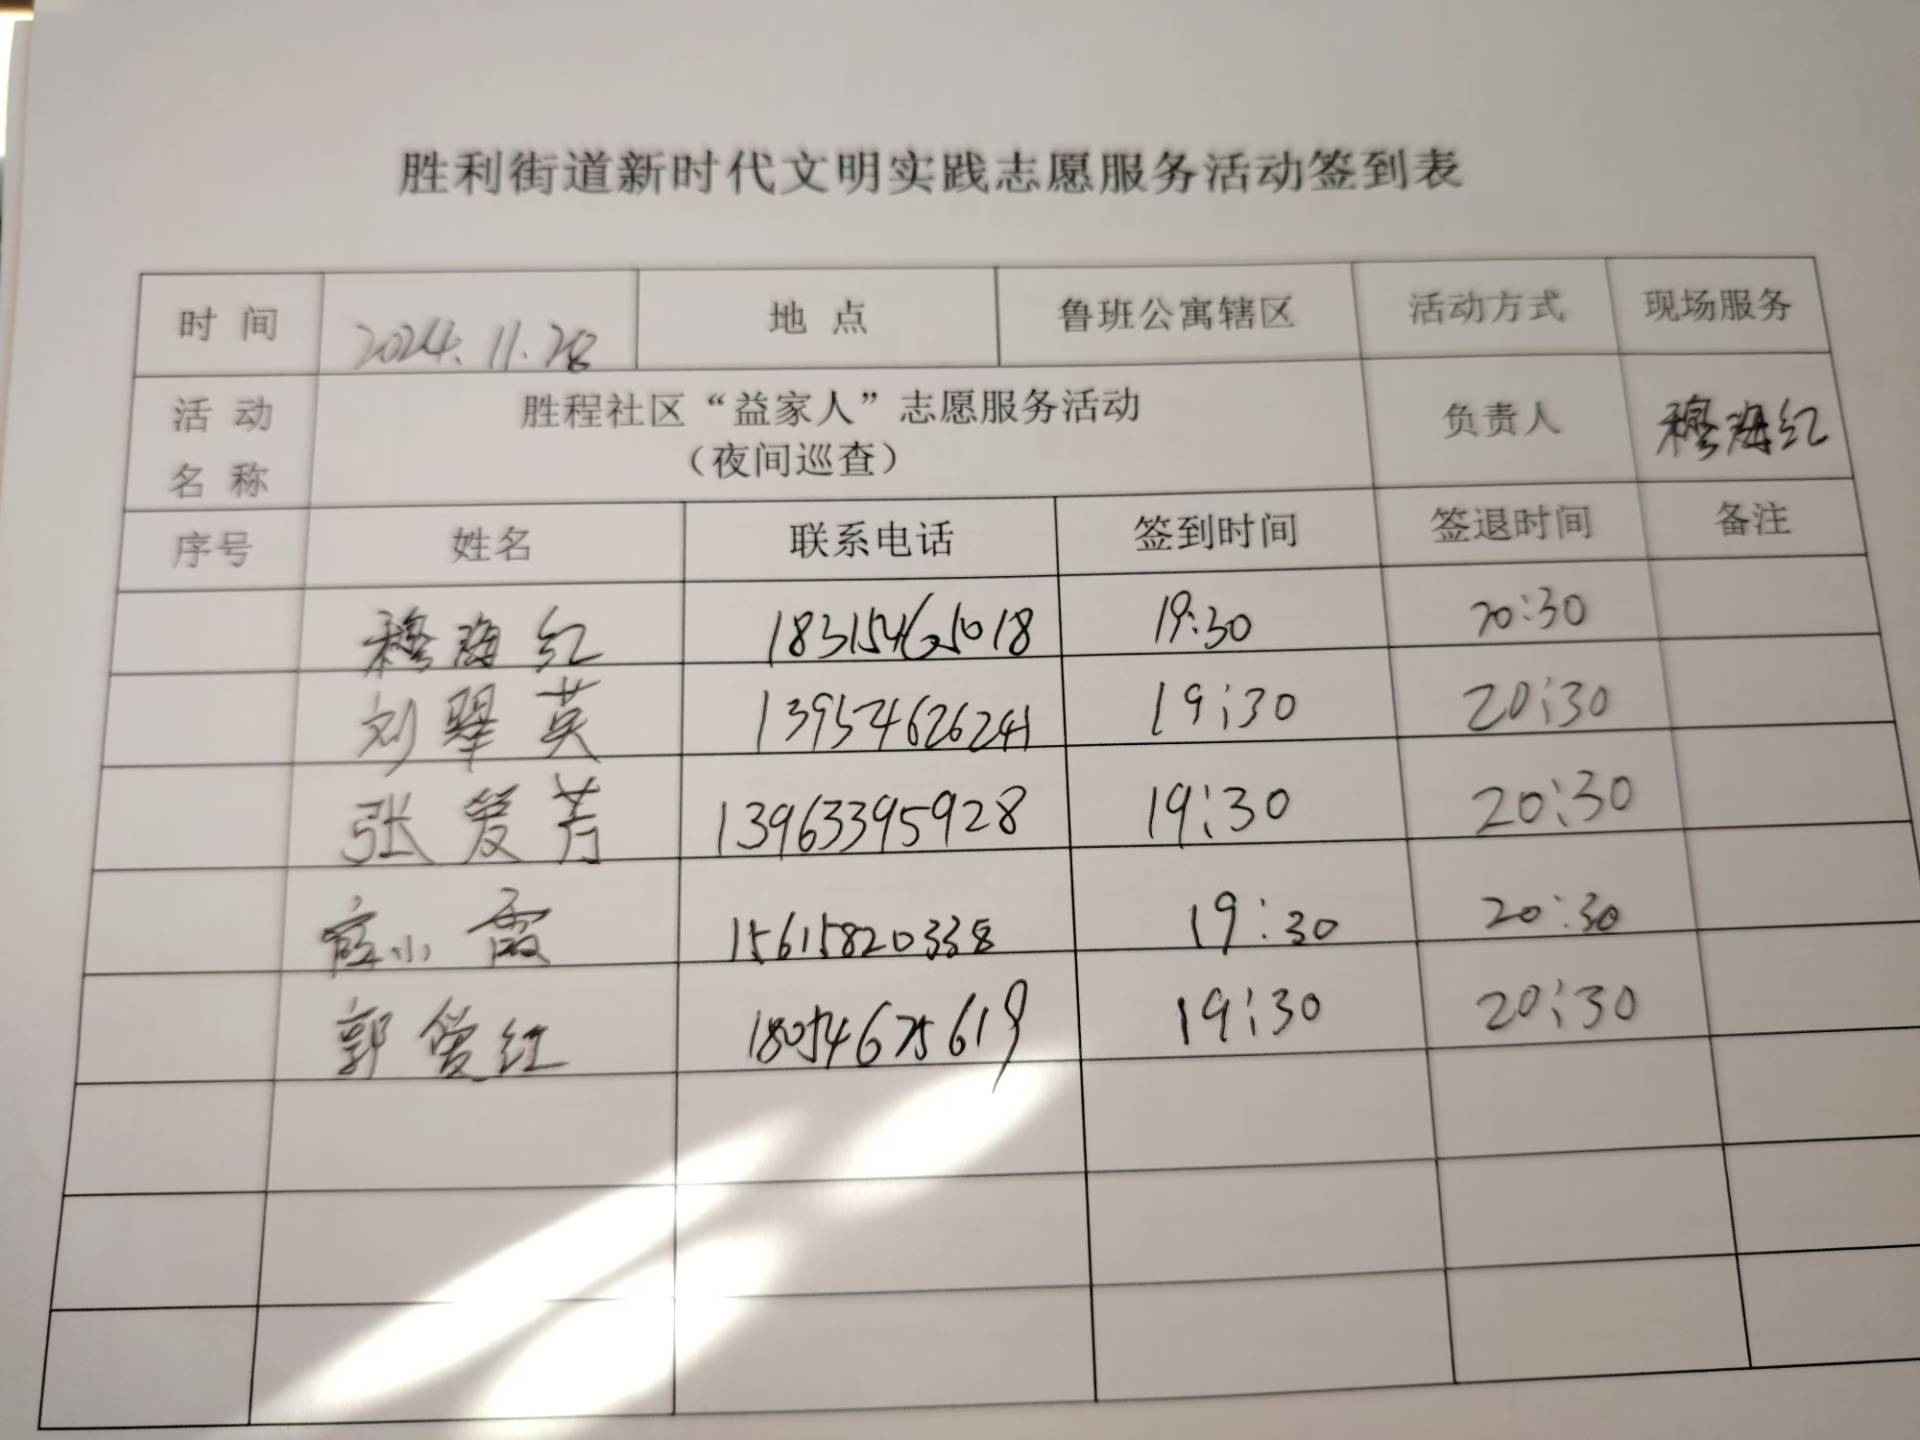 胜利街道新时代文明实践志愿服务活动签到表
时 间 2024.11.28 地 点 鲁班公寓辖区 活动方式 现场服务
活 动 名 称 胜程社区“益家人”志愿服务活动 （夜间巡查） 负责人 穆海红
序号 姓名 联系电话 签到时间 签退时间 备注
穆海红 18315465018 19:30 20:30
刘翠英 13954626241 19:30 20:30
张爱芳 13963395928 19:30 20:30
小霞 15615820338 19:30 20:30
郭爱红 18054675619 19:30 20:30